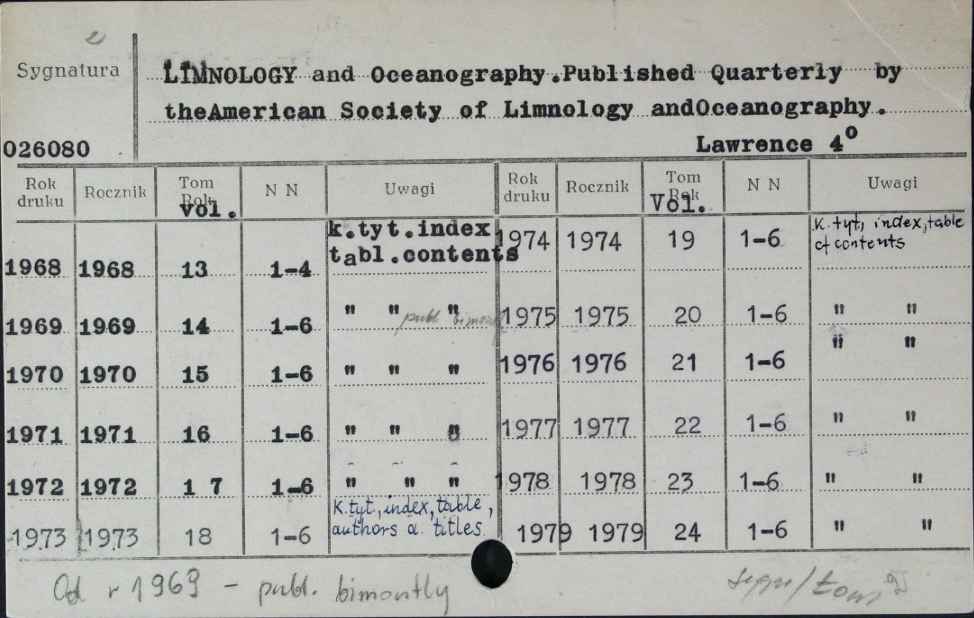 Sygnatura
LIMNOLOGY and Oceanography.Published Quarterly by
theAmerican Society of Limnology andOceanography.
026080
Lawrence 4º
Rok druku Rocznik Tom Rok Vol. N N Uwagi
1968 1968 13 1-4 k.tyt.index tabl.contents
1969 1969 14 1-6 " " " publ bimont
1970 1970 15 1-6 " " "
1971 1971 16 1-6 " " "
1972 1972 1 7 1-6 " " "
1973 1973 18 1-6 k.tyt, index, table, authors a. titles
Rok druku Rocznik Tom Rok Vol. N N Uwagi
1974 1974 19 1-6 k.tyt, index, table of contents
1975 1975 20 1-6 " "
1976 1976 21 1-6 " "
1977 1977 22 1-6 " "
1978 1978 23 1-6 " "
1979 1979 24 1-6 " "
Od r 1969 - publ. bimontly